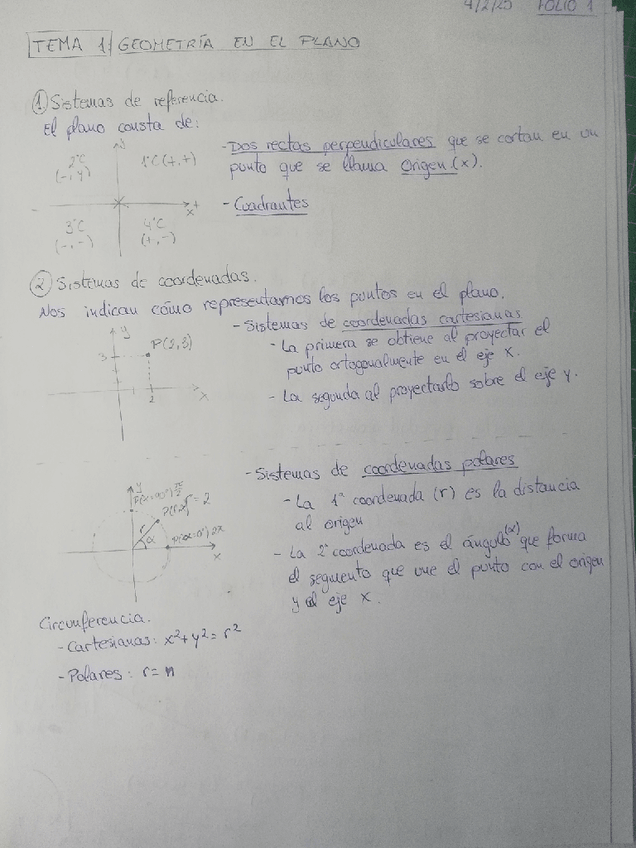 4/2/25 FOLIO 1
TEMA 1 GEOMETRÍA EN EL PLANO
① Sistemas de referencia.
El plano consta de:
- Dos rectas perpendiculares que se cortan en un
punto que se llama Origen (x).
- Cuadrantes
y
2ºC
(-, y)
1ºC (+, +)
x
3ºC
(-, -)
4ºC
(+, -)
② Sistemas de coordenadas.
Nos indican cómo representamos los puntos en el plano.
- Sistemas de coordenadas cartesianas
- La primera se obtiene al proyectar el
punto ortogonalmente en el eje x.
- La segunda al proyectarlo sobre el eje y.
y
P(2,3)
3
2
x
- Sistemas de coordenadas polares
- La 1ª coordenada (r) es la distancia
al origen
- La 2ª coordenada es el ángulo (α) que forma
el segmento que une el punto con el origen
y el eje x.
y
r = 2
r
α
x
Circunferencia.
- Cartesianas: x²+y²=r²
- Polares: r=n